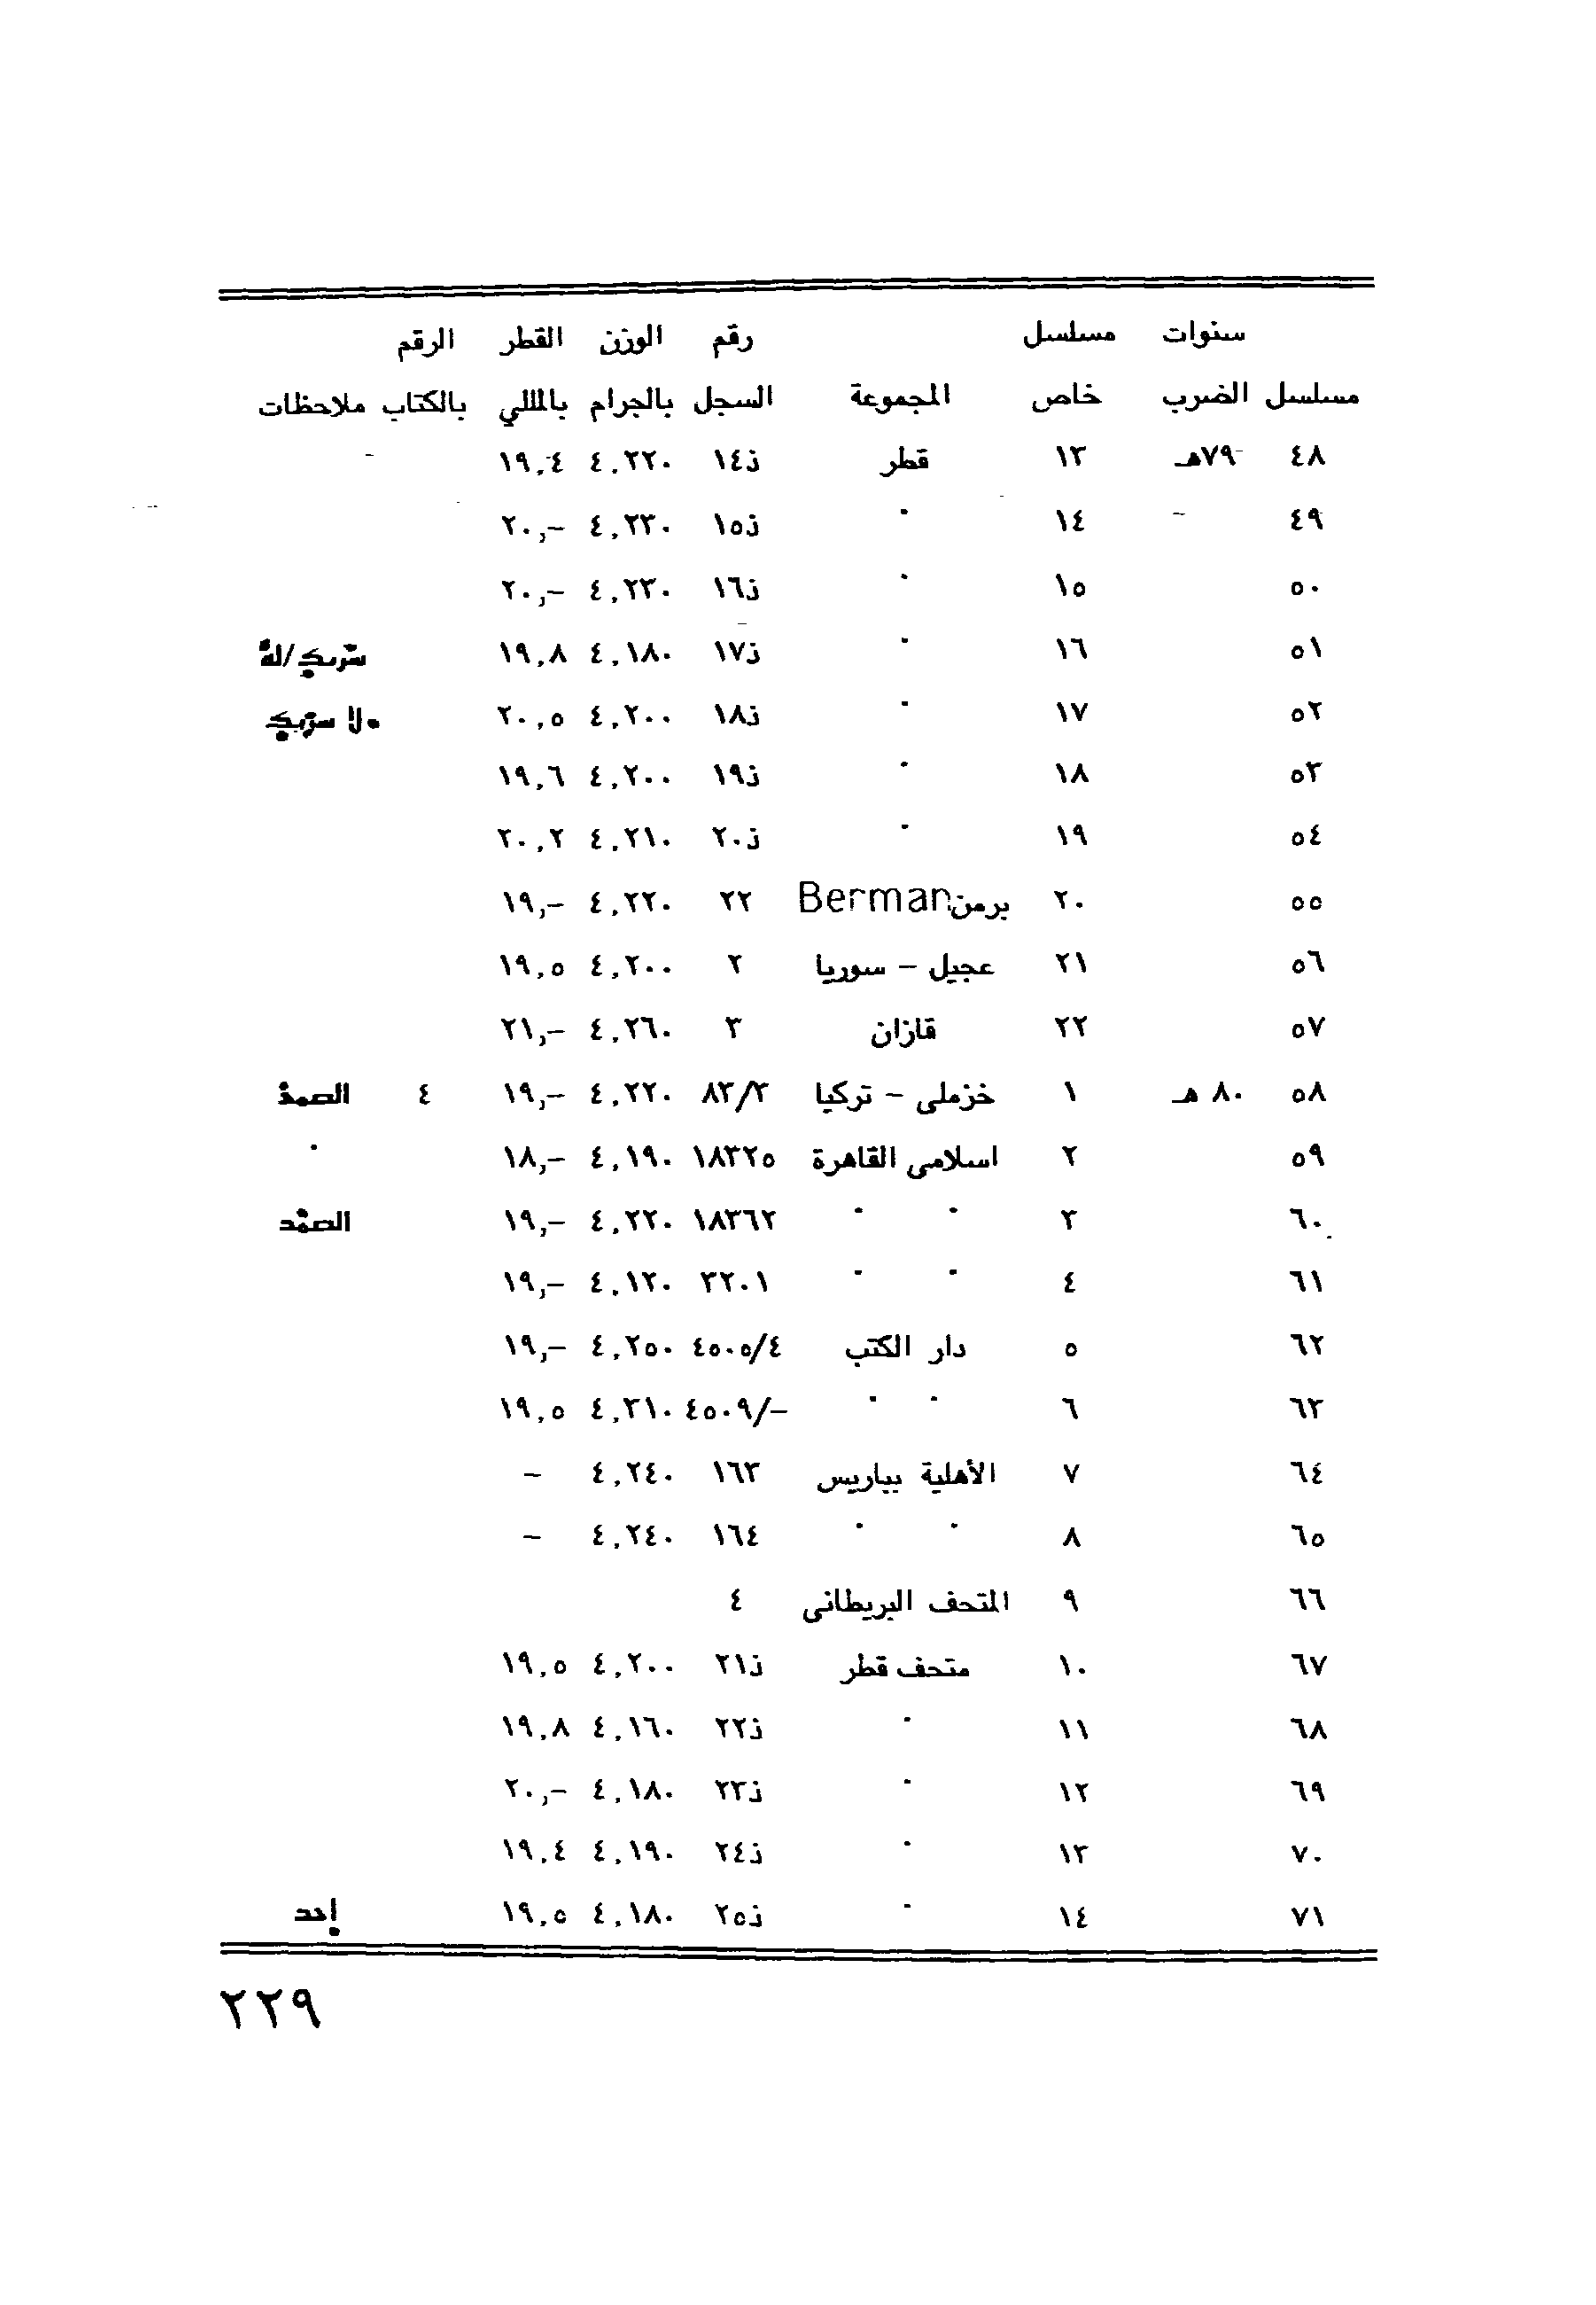 سنوات مسلسل رقم الوزن القطر الرقم
مسلسل الضرب خاص المجموعة السجل بالجرام بالمللي بالكتاب ملاحظات
٤٨ ٧٩هـ ١٣ قطر ذ١٤ ٤,٢٢٠ ١٩,٤
٤٩ ١٤ " ذ١٥ ٤,٢٣٠ ٢٠,–
٥٠ ١٥ " ذ١٦ ٤,٢٣٠ ٢٠,–
٥١ ١٦ " ذ١٧ ٤,١٨٠ ١٩,٨
٥٢ ١٧ " ذ١٨ ٤,٢٠٠ ٢٠,٥
٥٣ ١٨ " ذ١٩ ٤,٢٠٠ ١٩,٦
٥٤ ١٩ " ذ٢٠ ٤,٢١٠ ٢٠,٢
٥٥ ٢٠ برمن Berman ٢٢ ٤,٢٢٠ ١٩,–
٥٦ ٢١ عجيل – سوريا ٢ ٤,٢٠٠ ١٩,٥
٥٧ ٢٢ قازان ٣ ٤,٢٦٠ ٢١,–
٥٨ ٨٠ هـ ١ خزملى – تركيا ٨٣/٢ ٤,٢٢٠ ١٩,– ٤ الصمد
٥٩ ٢ اسلامى القاهرة ١٨٣٢٥ ٤,١٩٠ ١٨,– "
٦٠ ٣ " " ١٨٣٦٢ ٤,٢٢٠ ١٩,– الصمد
٦١ ٤ " " ٢٢٠١ ٤,١٢٠ ١٩,–
٦٢ ٥ دار الكتب ٤٥٠٥/٤ ٤,٢٥٠ ١٩,–
٦٣ ٦ " " ٤٥٠٩/– ٤,٢١٠ ١٩,٥
٦٤ ٧ الأهلية بباريس ١٦٣ ٤,٢٤٠ –
٦٥ ٨ " " ١٦٤ ٤,٢٤٠ –
٦٦ ٩ المتحف البريطانى ٤
٦٧ ١٠ متحف قطر ذ٢١ ٤,٢٠٠ ١٩,٥
٦٨ ١١ " ذ٢٢ ٤,١٦٠ ١٩,٨
٦٩ ١٢ " ذ٢٣ ٤,١٨٠ ٢٠,–
٧٠ ١٣ " ذ٢٤ ٤,١٩٠ ١٩,٤
٧١ ١٤ " ذ٢٥ ٤,١٨٠ ١٩,٥
٢٢٩